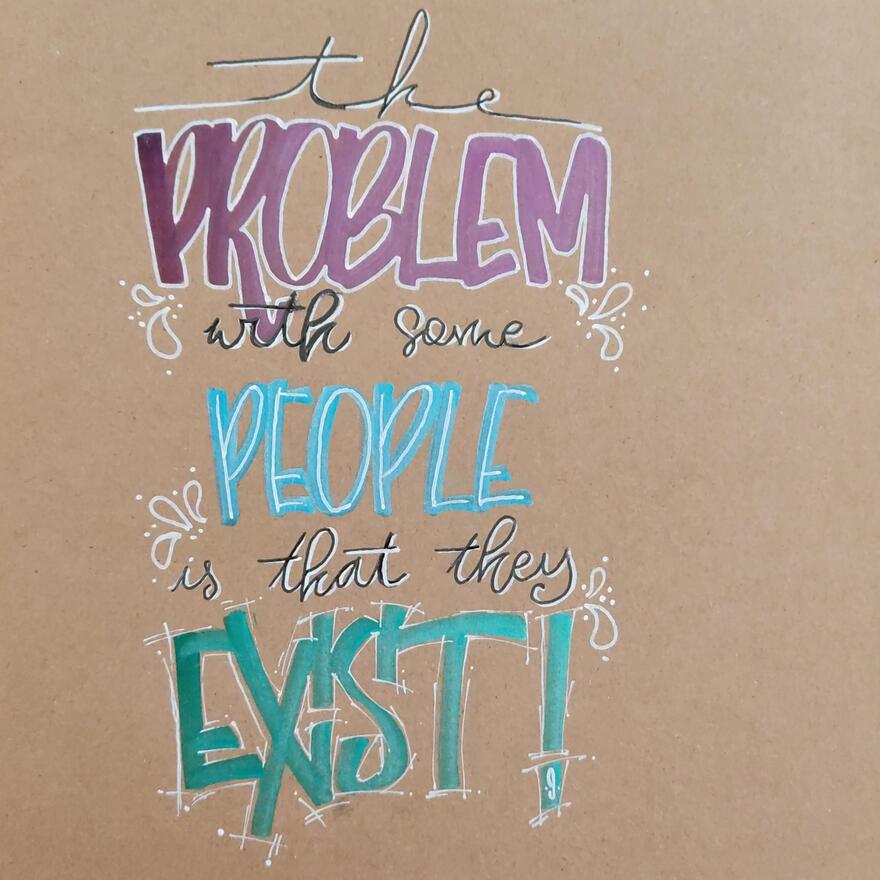 the
PROBLEM
with some
PEOPLE
is that they
EXIST!